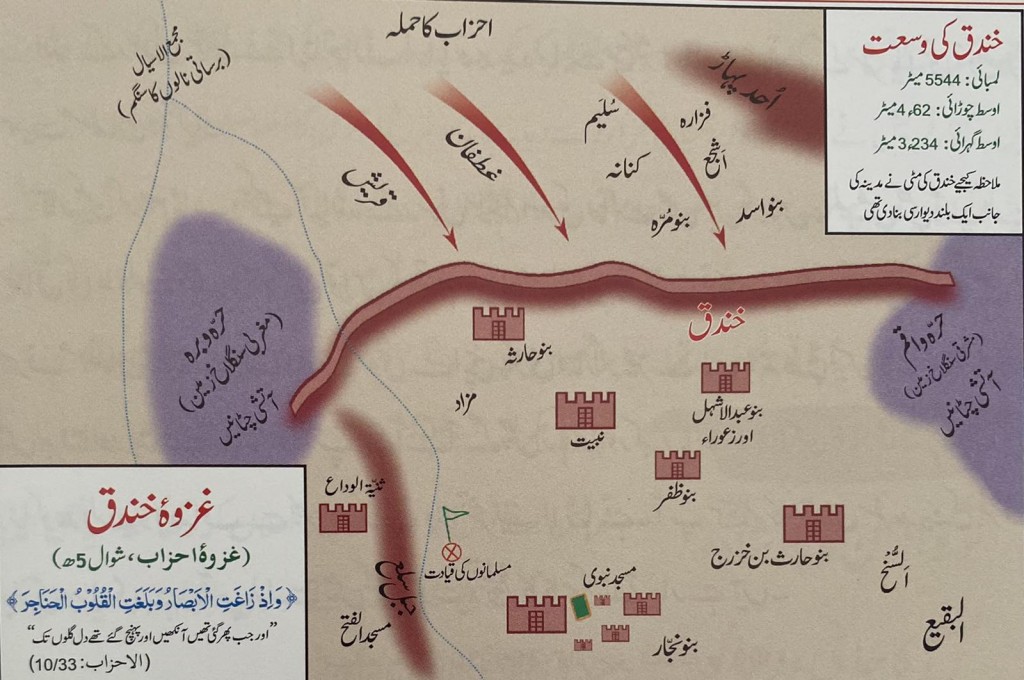 احزاب کا حملہ
خندق کی وسعت
لمبائی: 5544 میٹر
اوسط چوڑائی: 62ء4 میٹر
اوسط گہرائی: 234ء3 میٹر
ملاحظہ کیجیے خندق کی مٹی نے مدینہ کی
جانب ایک بلند دیوار سی بنا دی تھی
مجمع الاسیال
(برساتی نالوں کا سنگم)
اُحد پہاڑ
قریش
غطفان
سُلَیم
فزارہ
کنانہ
اَشجع
بنو مُرّہ
بنو اسد
خندق
حرّہ وبرہ
(مغربی سنگلاخ زمین)
آتشی چٹانیں
حرّہ واقم
(مشرقی سنگلاخ زمین)
آتشی چٹانیں
بنو حارثہ
مزاد
نبیت
بنو عبدالاشہل
اور زعوراء
بنو ظفر
بنو حارث بن خزرج
اَلسُّنخ
البقیع
ثنیّۃ الوداع
جبل سلع
مسجد الفتح
مسلمانوں کی قیادت
مسجد نبوی
بنو نجّار
غزوۂ خندق
(غزوۂ احزاب، شوال 5ھ)
﴿ وَاِذْ زَاغَتِ الْاَبْصَارُ وَبَلَغَتِ الْقُلُوْبُ الْحَنَاجِرَ ﴾
”اور جب پھر گئی تھیں آنکھیں اور پہنچ گئے تھے دل گلوں تک“
(الاحزاب: 10/33)